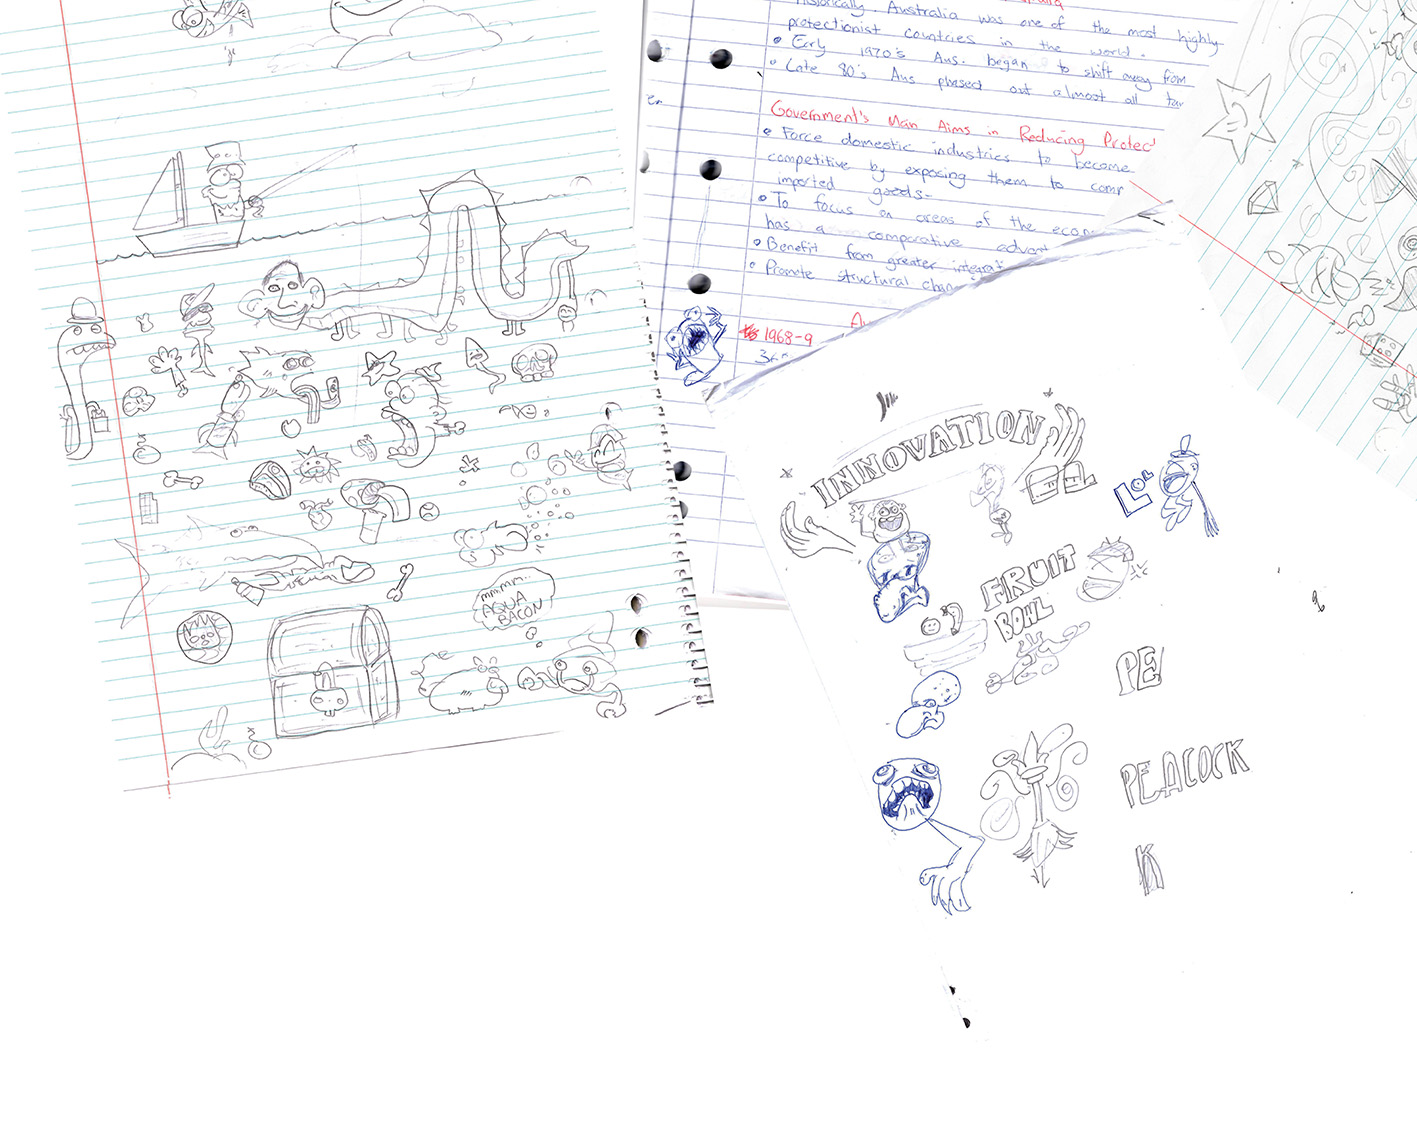 Historically, Australia was one of the most highly
protectionist countries in the world.
• Early 1970's Aus. began to shift away from
• Late 80's Aus phased out almost all tar
Government's Man Aims in Reducing Protec
• Force domestic industries to become
competitive by exposing them to comp
imported goods.
• To focus on areas of the econ
has a comparative advant
• Benefit from greater integrat
• Promote structural chan
1968-9
mmmm...
AQUA
BACON
INNOVATION
LOL
FRUIT
BOWL
PE
PEACOCK
K